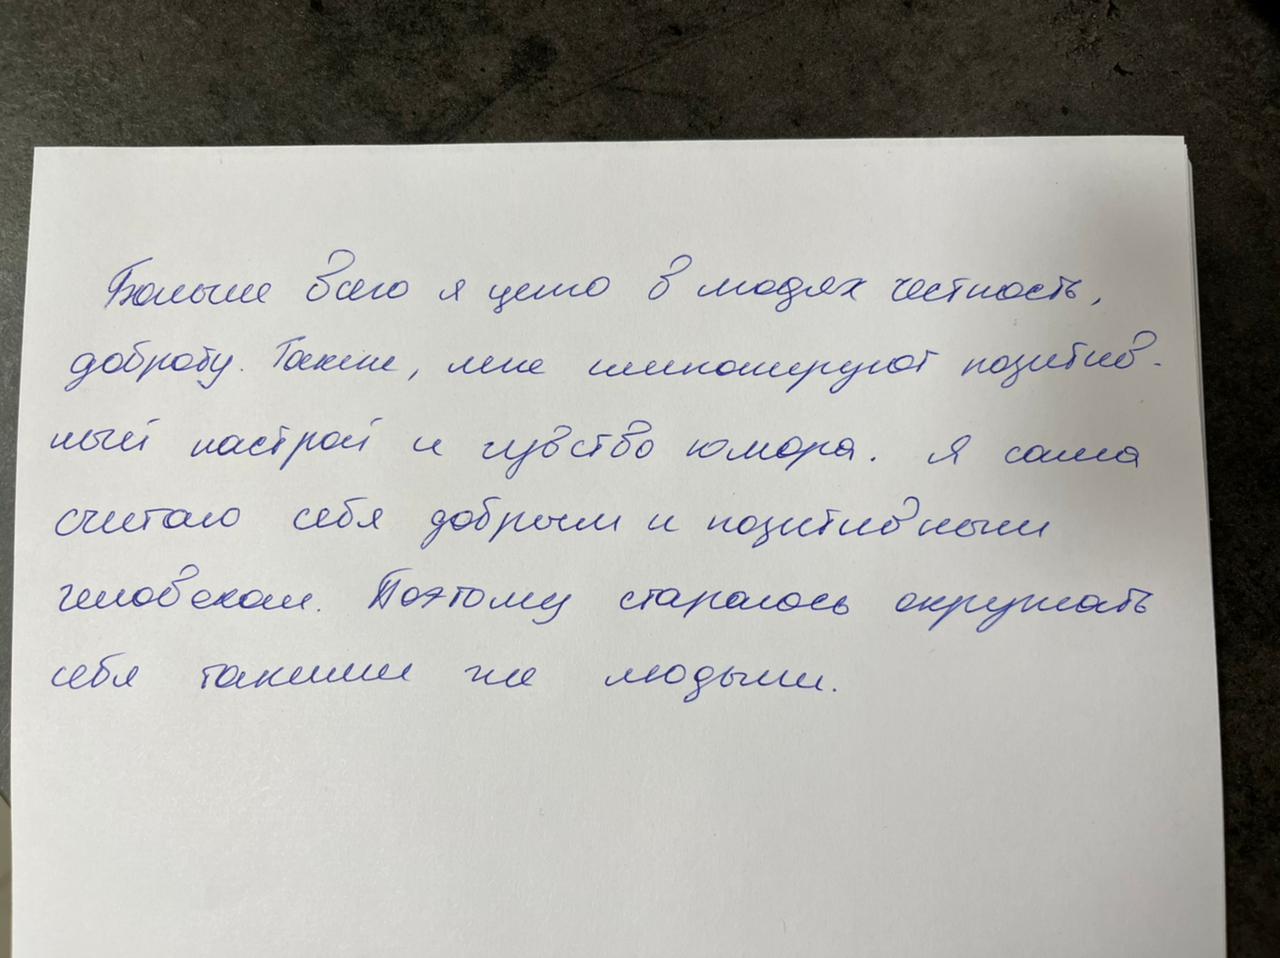 Больше всего я ценю в людях честность,
доброту. Также, мне импонируют позитив-
ный настрой и чувство юмора. Я сама
считаю себя добрым и позитивным
человеком. Поэтому стараюсь окружать
себя такими же людьми.